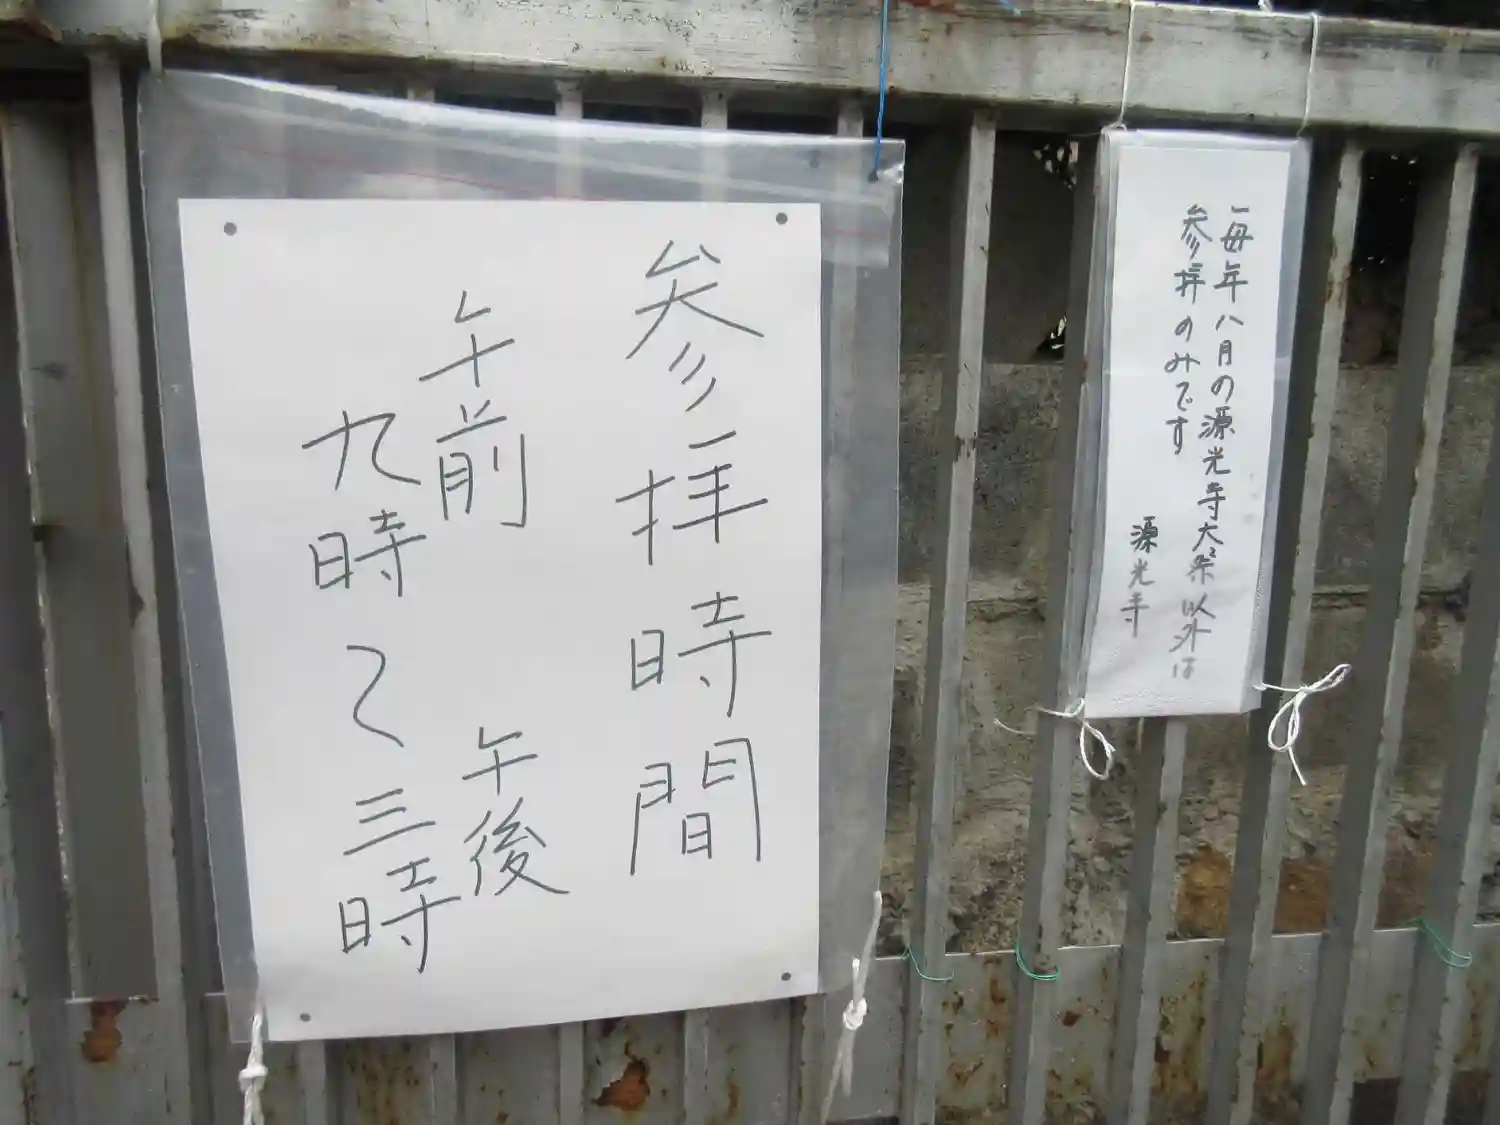 参拝時間
午前 午後
九時〜三時
毎年八月の源光寺大祭以外は
参拝のみです
源光寺